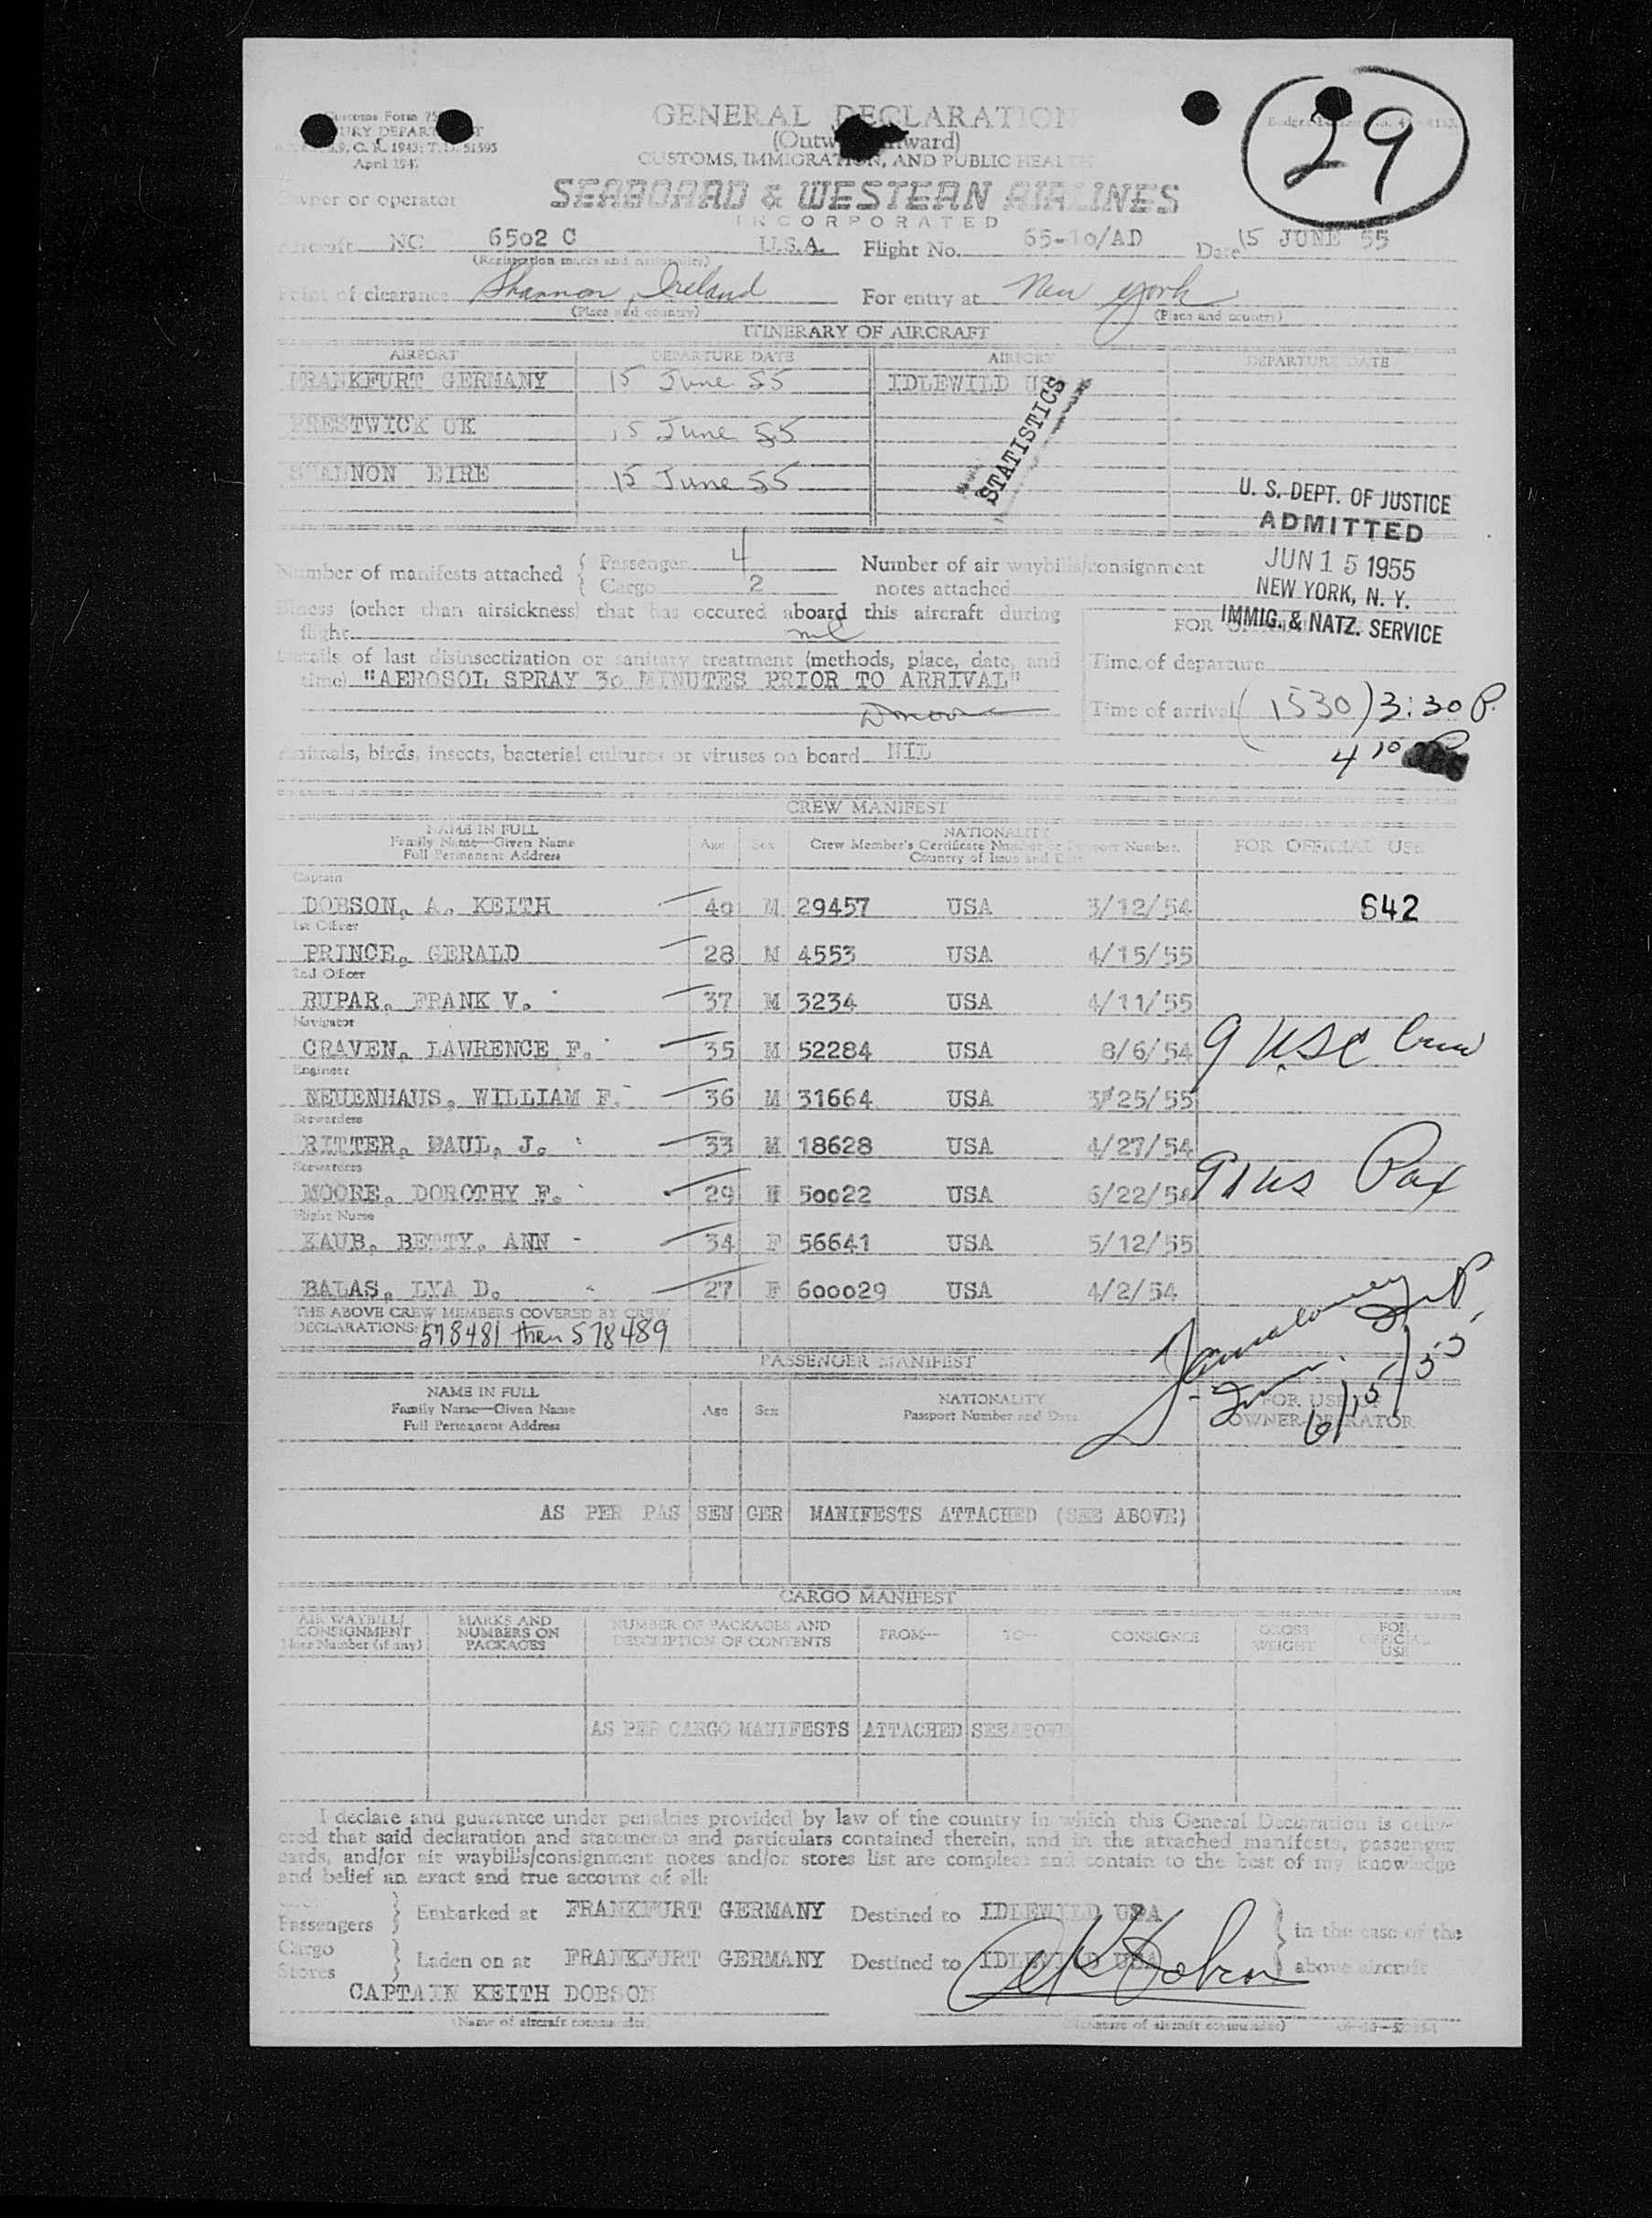 Customs Form 75
GENERAL DECLARATION
29
(Outward/Inward)
CUSTOMS, IMMIGRATION, AND PUBLIC HEALTH
April 1947
Owner or operator SEABOARD & WESTERN AIRLINES
INCORPORATED
Aircraft NC 6502 C U.S.A. Flight No. 65-10/AD Date 15 JUNE 55
(Registration marks and nationality)
Point of clearance Shannon, Ireland For entry at New York
(Place and country) (Place and country)
ITINERARY OF AIRCRAFT
AIRPORT DEPARTURE DATE AIRPORT DEPARTURE DATE
FRANKFURT GERMANY 15 June 55 IDLEWILD US
PRESTWICK UK 15 June 55
STATISTICS
SHANNON EIRE 15 June 55
U. S. DEPT. OF JUSTICE
ADMITTED
JUN 15 1955
NEW YORK, N. Y.
IMMIG. & NATZ. SERVICE
Number of manifests attached { Passenger 4 Number of air waybills/consignment
Cargo 2 notes attached
Illness (other than airsickness) that has occured aboard this aircraft during
flight nil
Details of last disinsectization or sanitary treatment (methods, place, date, and
time) "AEROSOL SPRAY 30 MINUTES PRIOR TO ARRIVAL"
Time of departure
Time of arrival (1530) 3:30 P.
4 10 P
Animals, birds, insects, bacterial cultures or viruses on board NIL
CREW MANIFEST
NAME IN FULL
Family Name—Given Name
Full Permanent Address
Age Sex
NATIONALITY
Crew Member's Certificate Number or Passport Number.
Country of Issue and Date
FOR OFFICIAL USE
Captain
DOBSON, A. KEITH 40 M 29457 USA 3/12/54 642
1st Officer
PRINCE, GERALD 28 M 4553 USA 4/15/55
2nd Officer
RUPAR, FRANK V. 37 M 3234 USA 4/11/55
Navigator
CRAVEN, LAWRENCE F. 35 M 52284 USA 8/6/54 9 USC Crew
Engineer
NEUENHAUS, WILLIAM F. 36 M 31664 USA 3/25/55
Stewardess
RITTER, PAUL, J. 33 M 18628 USA 4/27/54
Stewardess
MOORE, DOROTHY F. 29 F 50022 USA 6/22/54 91 US Pax
Flight Nurse
KAUB, BETTY, ANN 34 F 56641 USA 5/12/55
BALAS, LYA D. 27 F 600029 USA 4/2/54
THE ABOVE CREW MEMBERS COVERED BY CREW
DECLARATIONS: 578481 thru 578489
6/15/55
PASSENGER MANIFEST
NAME IN FULL
Family Name—Given Name
Full Permanent Address
Age Sex
NATIONALITY
Passport Number and Date
FOR USE OF
OWNER-OPERATOR
AS PER PAS SEN GER MANIFESTS ATTACHED (SEE ABOVE)
CARGO MANIFEST
AIR WAYBILL/
CONSIGNMENT
Note Number (if any)
MARKS AND
NUMBERS ON
PACKAGES
NUMBER OF PACKAGES AND
DESCRIPTION OF CONTENTS
FROM— TO— CONSIGNEE
GROSS
WEIGHT
FOR
OFFICIAL
USE
AS PER CARGO MANIFESTS ATTACHED SEE ABOVE
I declare and guarantee under penalties provided by law of the country in which this General Declaration is deliv-
ered that said declaration and statements and particulars contained therein, and in the attached manifests, passenger
cards, and/or air waybills/consignment notes and/or stores list are complete and contain to the best of my knowledge
and belief an exact and true account of all:
Passengers } Embarked at FRANKFURT GERMANY Destined to IDLEWILD USA } in the case of the
Cargo
Stores } Laden on at FRANKFURT GERMANY Destined to IDLEWILD USA above aircraft
CAPTAIN KEITH DOBSON AKDobson
(Name of aircraft commander) (Signature of aircraft commander)